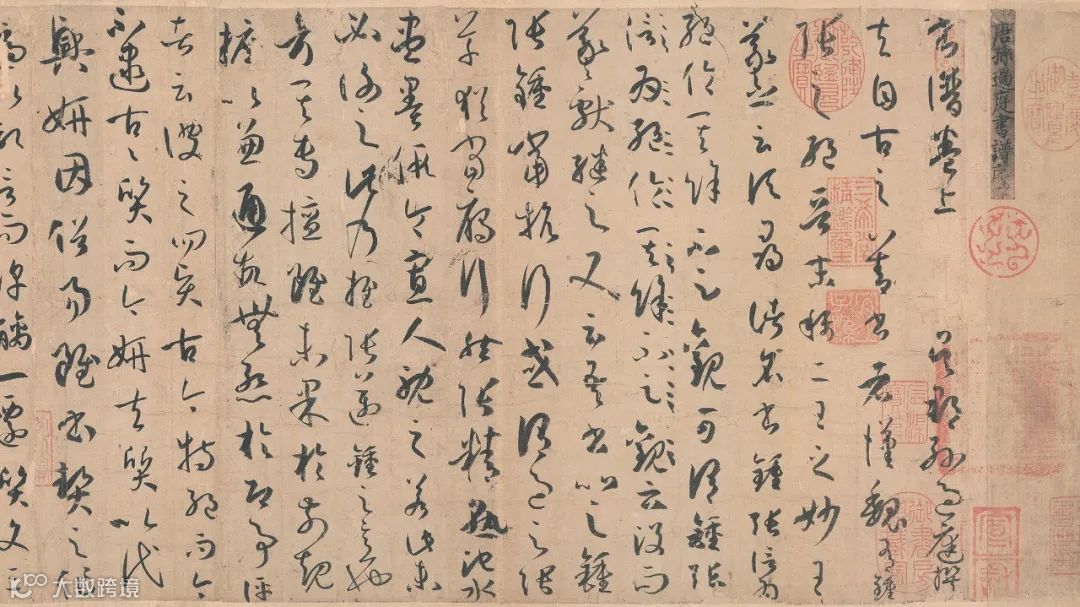 唐孫過庭書譜序上
書譜卷上 吳郡孫過庭撰
夫自古之善書者漢魏有鍾
張之絕晉末稱二王之妙王
羲之云頃尋諸名書鍾張信為
絕倫其餘不足觀可謂鍾張
信為絕倫其餘不足觀云沒而
羲獻繼之又云吾書比之鍾
張鍾當抗行或謂過之張
草猶當鴈行然張精熟池水
盡墨假令寡人耽之若此未
必謝之此乃推張邁鍾之意也
考其專擅雖未果於前規
摭以兼通故無慚於即事評
者云彼之四賢古今特絕而今
不逮古古質而今妍夫質以代
興妍因俗易雖書契之作
適以記言而淳醨一遷質文三
三希堂精鑑璽
宜子孫
大数跨境